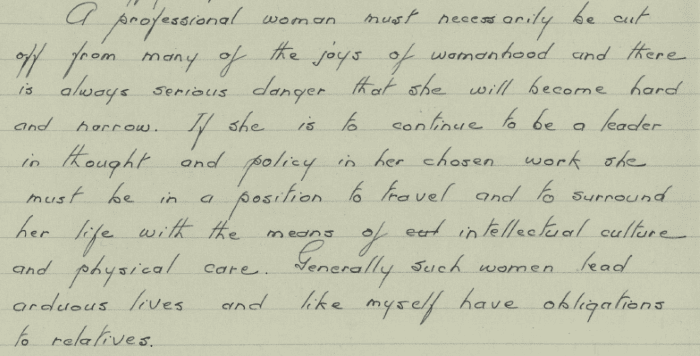 A professional woman must necessarily be cut
off from many of the joys of womanhood and there
is always serious danger that she will become hard
and narrow. If she is to continue to be a leader
in thought and policy in her chosen work she
must be in a position to travel and to surround
her life with the means of intellectual culture
and physical care. Generally such women lead
arduous lives and like myself have obligations
to relatives.